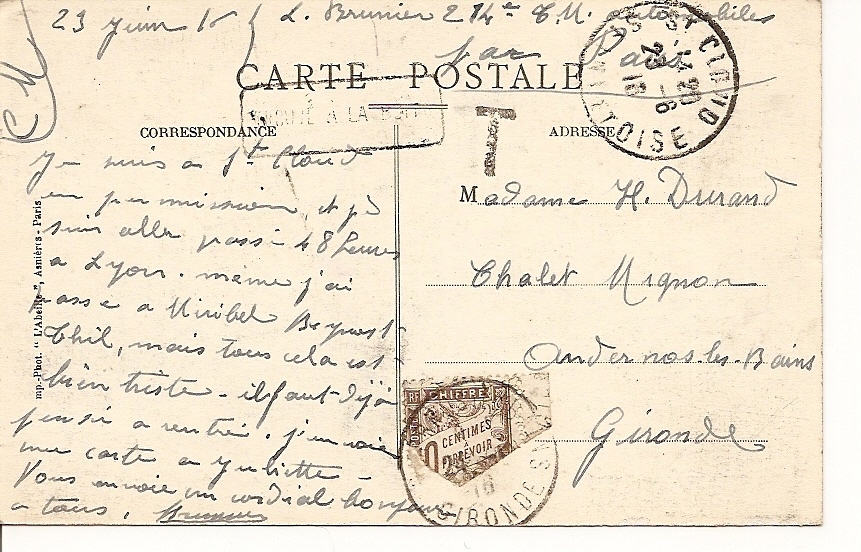 23 juin 16 L. Brunier 214e T.M. automobiles
par Paris
CM
CARTE POSTALE
TROUVÉ À LA BOITE
T
ST CLOUD
14 20
23 - 6
16
SEINE ET OISE
CORRESPONDANCE
ADRESSE
Je suis a St Cloud
en permission, et je
suis aller passé 48 heures
a Lyon. même j'ai
passé a Miribel Beynost
Thil, mais tous cela est
bien triste - il faut déjà
pensé a rentré. j'envoie
une carte a Juliette -
Vous envoie un cordial bonjour
a tous, Brunier
Madame H. Durand
Chalet Mignon
Andernos-les-Bains
Gironde
RF CHIFFRE
POSTES
10 CENTIMES
A
PERCEVOIR
16
GIRONDE
mp.-Phot. "L'Abeille", Asnières - Paris